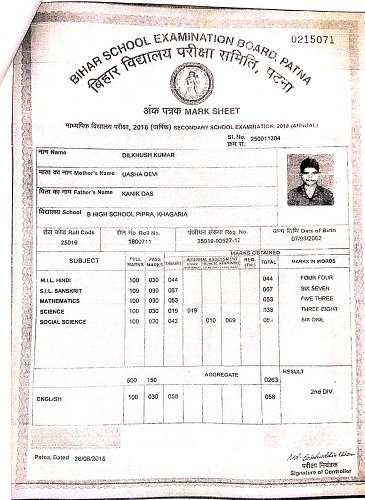 0215071
BIHAR SCHOOL EXAMINATION BOARD, PATNA
बिहार विद्यालय परीक्षा समिति, पटना
अंक पत्रक MARK SHEET
माध्यमिक विद्यालय परीक्षा, 2018 (वार्षिक) SECONDARY SCHOOL EXAMINATION, 2018 (ANNUAL)
Sl. No. 250011304
क्रम सं.
नाम Name DILKHUSH KUMAR
माता का नाम Mother's Name UASHA DEVI
पिता का नाम Father's Name KANIK DAS
विद्यालय School B HIGH SCHOOL, PIPRA, KHAGARIA
रोल कोड Roll Code रोल नं० Roll No. पंजीयन संख्या Reg. No. जन्म तिथि Date of Birth
25019 1800711 07/03/2002
MARKS OBTAINED
SUBJECT FULL MARKS PASS MARKS THEORY INTERNAL ASSESSMENT REG. TOTAL MARKS IN WORDS
M.I.L. HINDI 100 030 044 044 FOUR FOUR
S.I.L. SANSKRIT 100 030 067 067 SIX SEVEN
MATHEMATICS 100 030 053 053 FIVE THREE
SCIENCE 100 030 019 019 038 THREE EIGHT
SOCIAL SCIENCE 100 030 042 010 009 SIX ONE
AGGREGATE RESULT
500 150 0263
2nd DIV.
ENGLISH 100 030 058 058
Patna, Dated 26/08/2018
परीक्षा नियंत्रक
Signature of Controller